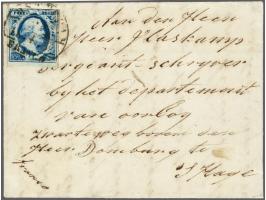 Aan den Heer
Heer Plaskamp
Sergeant-schryver
by het departement
van oorlog
Zwarteweg boven den
Heer Domburg te
S Hage
franco